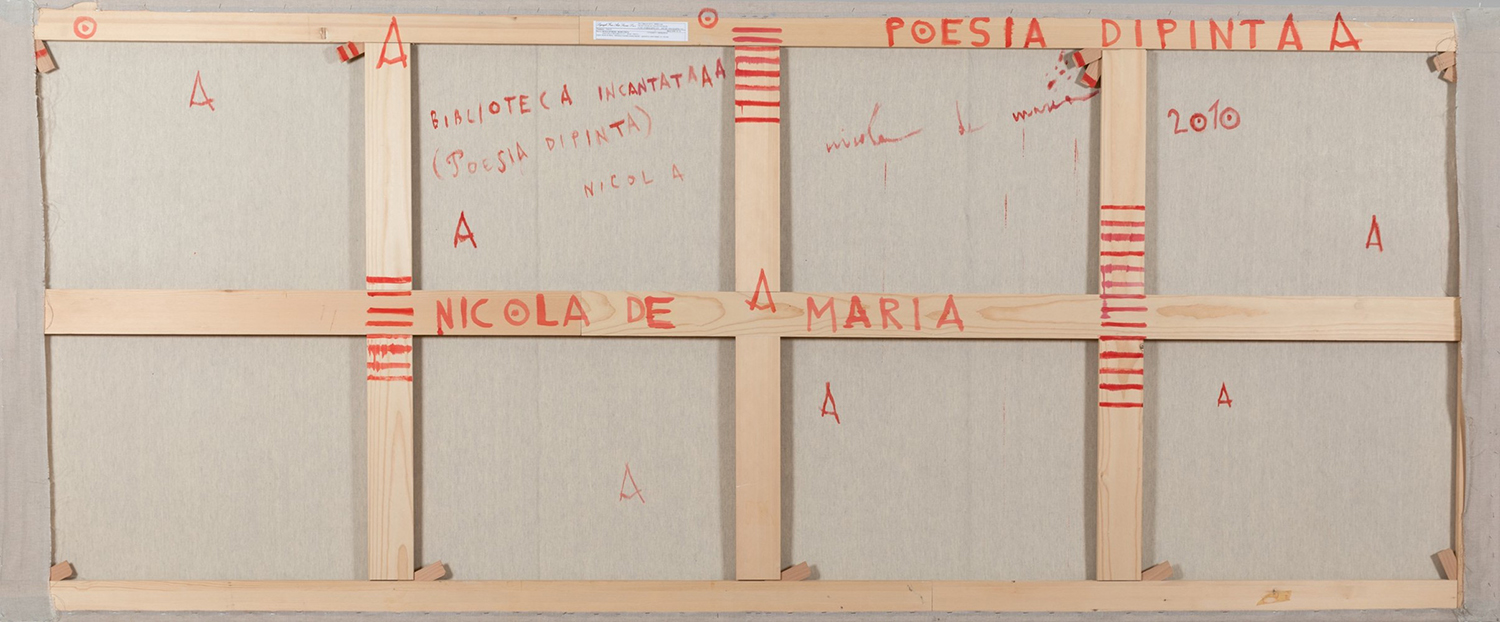 A
POESIA DIPINTA A
A
BIBLIOTECA INCANTATAAA
(POESIA DIPINTA)
NICOLA
A
nicola de maria
2010
A
NICOLA DE A MARIA
A
A
A